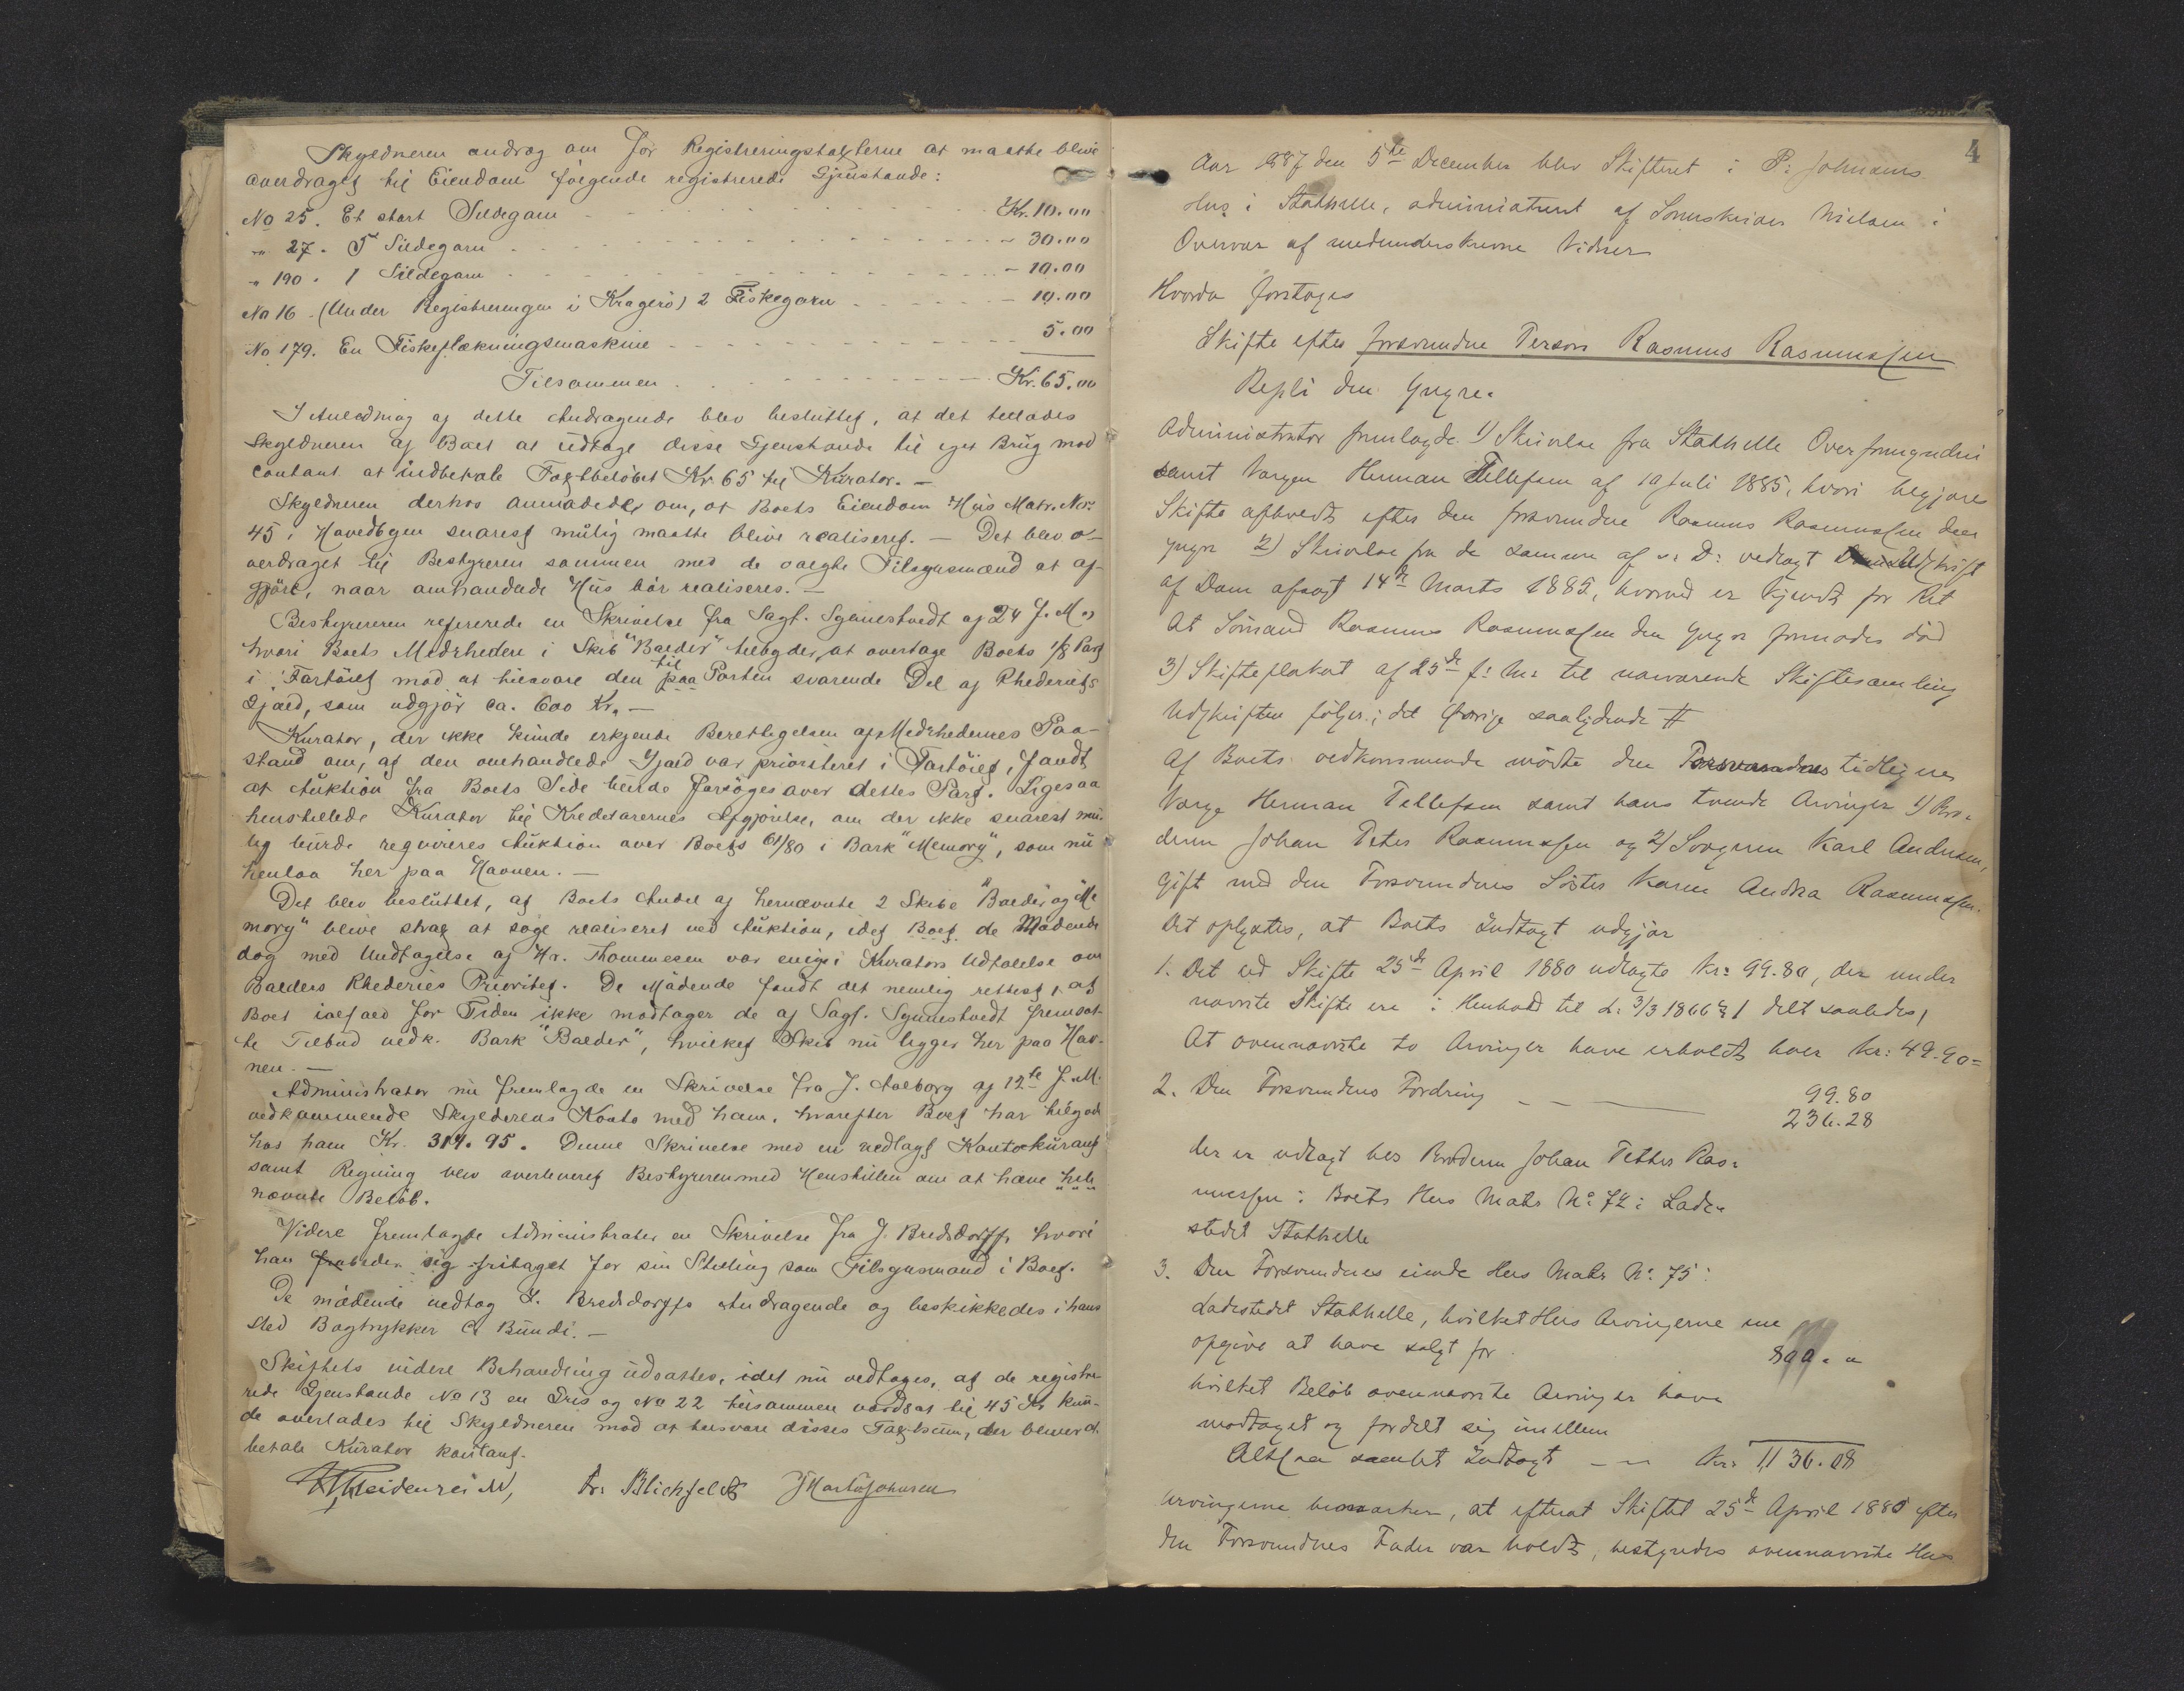 Skyldneren androg om for Registreringstakterne at maatte blive
overdraget til Eiendom følgende registrerede Gjenstande:
No 25. Et stort Sildegarn Kr. 10.00
" 27. 5 Sildegarn - 30.00
" 190. 1 Sildegarn - 10.00
No 16. (Under Registreringen i Kragerö) 2 Fiskegarn - 10.00
No 179. En Fiskeflækningsmaskine 5.00
Tilsammen Kr. 65.00
I Anledning af dette Andragende blev besluttet, at det tillodes
Skyldneren af Boet at udtage disse Gjenstande til eget Brug mod
contant at indbetale Taxtbelöbet Kr 65 til Kurator. —
Skyldneren derhos anmodede om, at Boets Eiendom Hus Matr. No
45 i Hovedbyen snarest mulig maatte blive realiseret. — Det blev o-
verdraget til Bestyreren sammen med de valgte Tilsynsmænd at af-
gjöre, naar omhandlede Hus bör realiseres. —
Bestyreren refererede en Skrivelse fra Sagf. Synnestvedt af 24 f. M.,
hvori Boets Medrhedere i Skib "Balder" tilbyder at overtage Boets 1/8 Part
i Fartöiet mod at tilsvare den til
paa Parten svarende Del af Rhederiets
Gjæld, som udgjör ca. 600 Kr. —
Kurator, der ikke kunde erkjende Berettigelsen af Medrhedernes Paa-
stand om, at den omhandlede Gjæld var prioriteret i Fartöiet, fandt
at Auktion fra Boets Side burde forsöges over dettes Part. Ligesaa
henstillede Kurator til Kreditorernes Afgjörelse, om der ikke snarest mu-
lig burde reqvireres Auktion over Boets 61/80 i Bark "Memory", som nu
henlaa her paa Havnen. —
Det blev besluttet, at Boets Andel af hernævnte 2 Skibe "Balder" og "Me
mory" blive strax at söge realiseret ved Auktion, idet Boet de Mödende
dog med Undtagelse af Hr. Thommesen var enige i Kurators Udtalelse om
Balders Rhederies Prioritet. De Mödende fandt det nemlig rettest, at
Boet ialfald for Tiden ikke modtager de af Sagf. Synnestvedt fremsat-
te Tilbud vedk. Bark "Balder", hvilket Skib nu ligger her paa Hav-
nen. —
Administrator nu fremlagde en Skrivelse fra J. Aalborg af 12te f. M.
vedkommende Skylderens Konto med ham, hvorefter Boet har tilgode
hos ham Kr. 314.95. Denne Skrivelse med en vedlagt Kontokurant
samt Regning blev overleveret Bestyreren med Henstillen om at hæve
nævnte Belöb.
Videre fremlagde Administrator en Skrivelse fra J. Bredsdorff, hvori
han frabeder sig fritaget for sin Stilling som Tilsynsmand i Boet.
De mödende vedtog J. Bredsdorffs Andragende og beskikkedes i hans
sted Bogtrykker C. Bundi. —
Skiftets videre Behandling udsattes, idet nu vedtoges, at de registre
rede Gjenstande No 13 en Pris og No 22 tilsammen værdsat til 45 Kr kun-
de overlades til Skyldneren mod at tilsvare disses Taxtsum, der bliver at
betale Kurator kontant.
Heidenreich, Fr: Blichfeldt J Martin Johnsen
4
Aar 1887 den 5te December blev Skifteret i P: Johnsens
Hus i Stathelle, administreret af Sorenskriver Nielsen i
Overvær af medunderskrevne Vidner
Hvorda foretoges
Skifte efter forsvundne Person Rasmus Rasmussen
Repli den Yngre.
Administrator fremlagde 1) Skrivelse fra Stathelle Overformynderi
samt Værgen Herman Tellefsen af 10 Juli 1885, hvori begjæres
Skifte afholdt efter den forsvundne Rasmus Rasmussen den
yngre 2) Skrivelse fra de samme af s: D: vedlagt Udskrift
af Dom afsagt 14de Marts 1885, hvorved er kjendt for Ret
At Sömand Rasmus Rasmussen den Yngre formodes död
3) Skifteplakat af 25de f: M: til nærværende Skiftesamling
Udskriften fölger i det Övrige saalydende #
Af Boets vedkommende mödte den Forsvundnes tidligere
Værge Herman Tellefsen samt hans tvende Arvinger 1) Bro-
deren Johan Peter Rasmussen og 2) Svogeren Karl Andersen,
gift med den Forsvundnes Söster Karen Andrea Rasmussen.
Det oplystes, at Boets Indtægt udgjör
1. Det ved Skifte 25de April 1880 udlagte Kr: 99.80, der under
nævnte Skifte ere i Henhold til L: 3/3 1866 § 1 delt saaledes,
At ovennævnte to Arvinger have erholdt hver Kr: 49.90 =
99.80
2. Den Forsvundnes Fordring 236.28
der er udlagt hos Broderen Johan Petter Ras-
mussen i Boets Hus Matr No 72 i Lade-
stedet Stathelle
3. Den Forsvundnes eiende Hus Matr No 75 i
Ladestedet Stathelle, hvilket Hus Arvingerne nu
opgive at have solgt for 800 . "
hvilket Belöb ovennævnte Arvinger have
modtaget og fordelt sig imellem
Altsaa samlet Indtægt — Kr: 1136.08
Arvingerne bemærker, at efterat Skiftet 25de April 1880 efter
den Forsvundnes Fader var holdt, bestyredes ovennævnte Hus